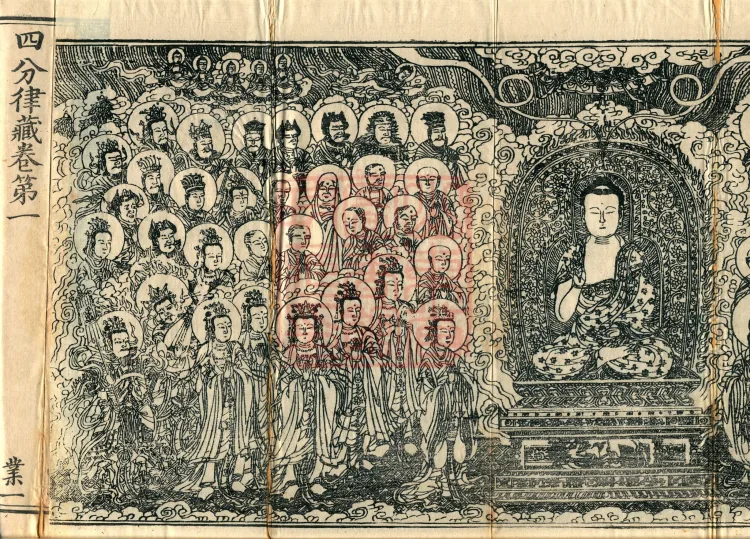 四分律藏卷第一
業一